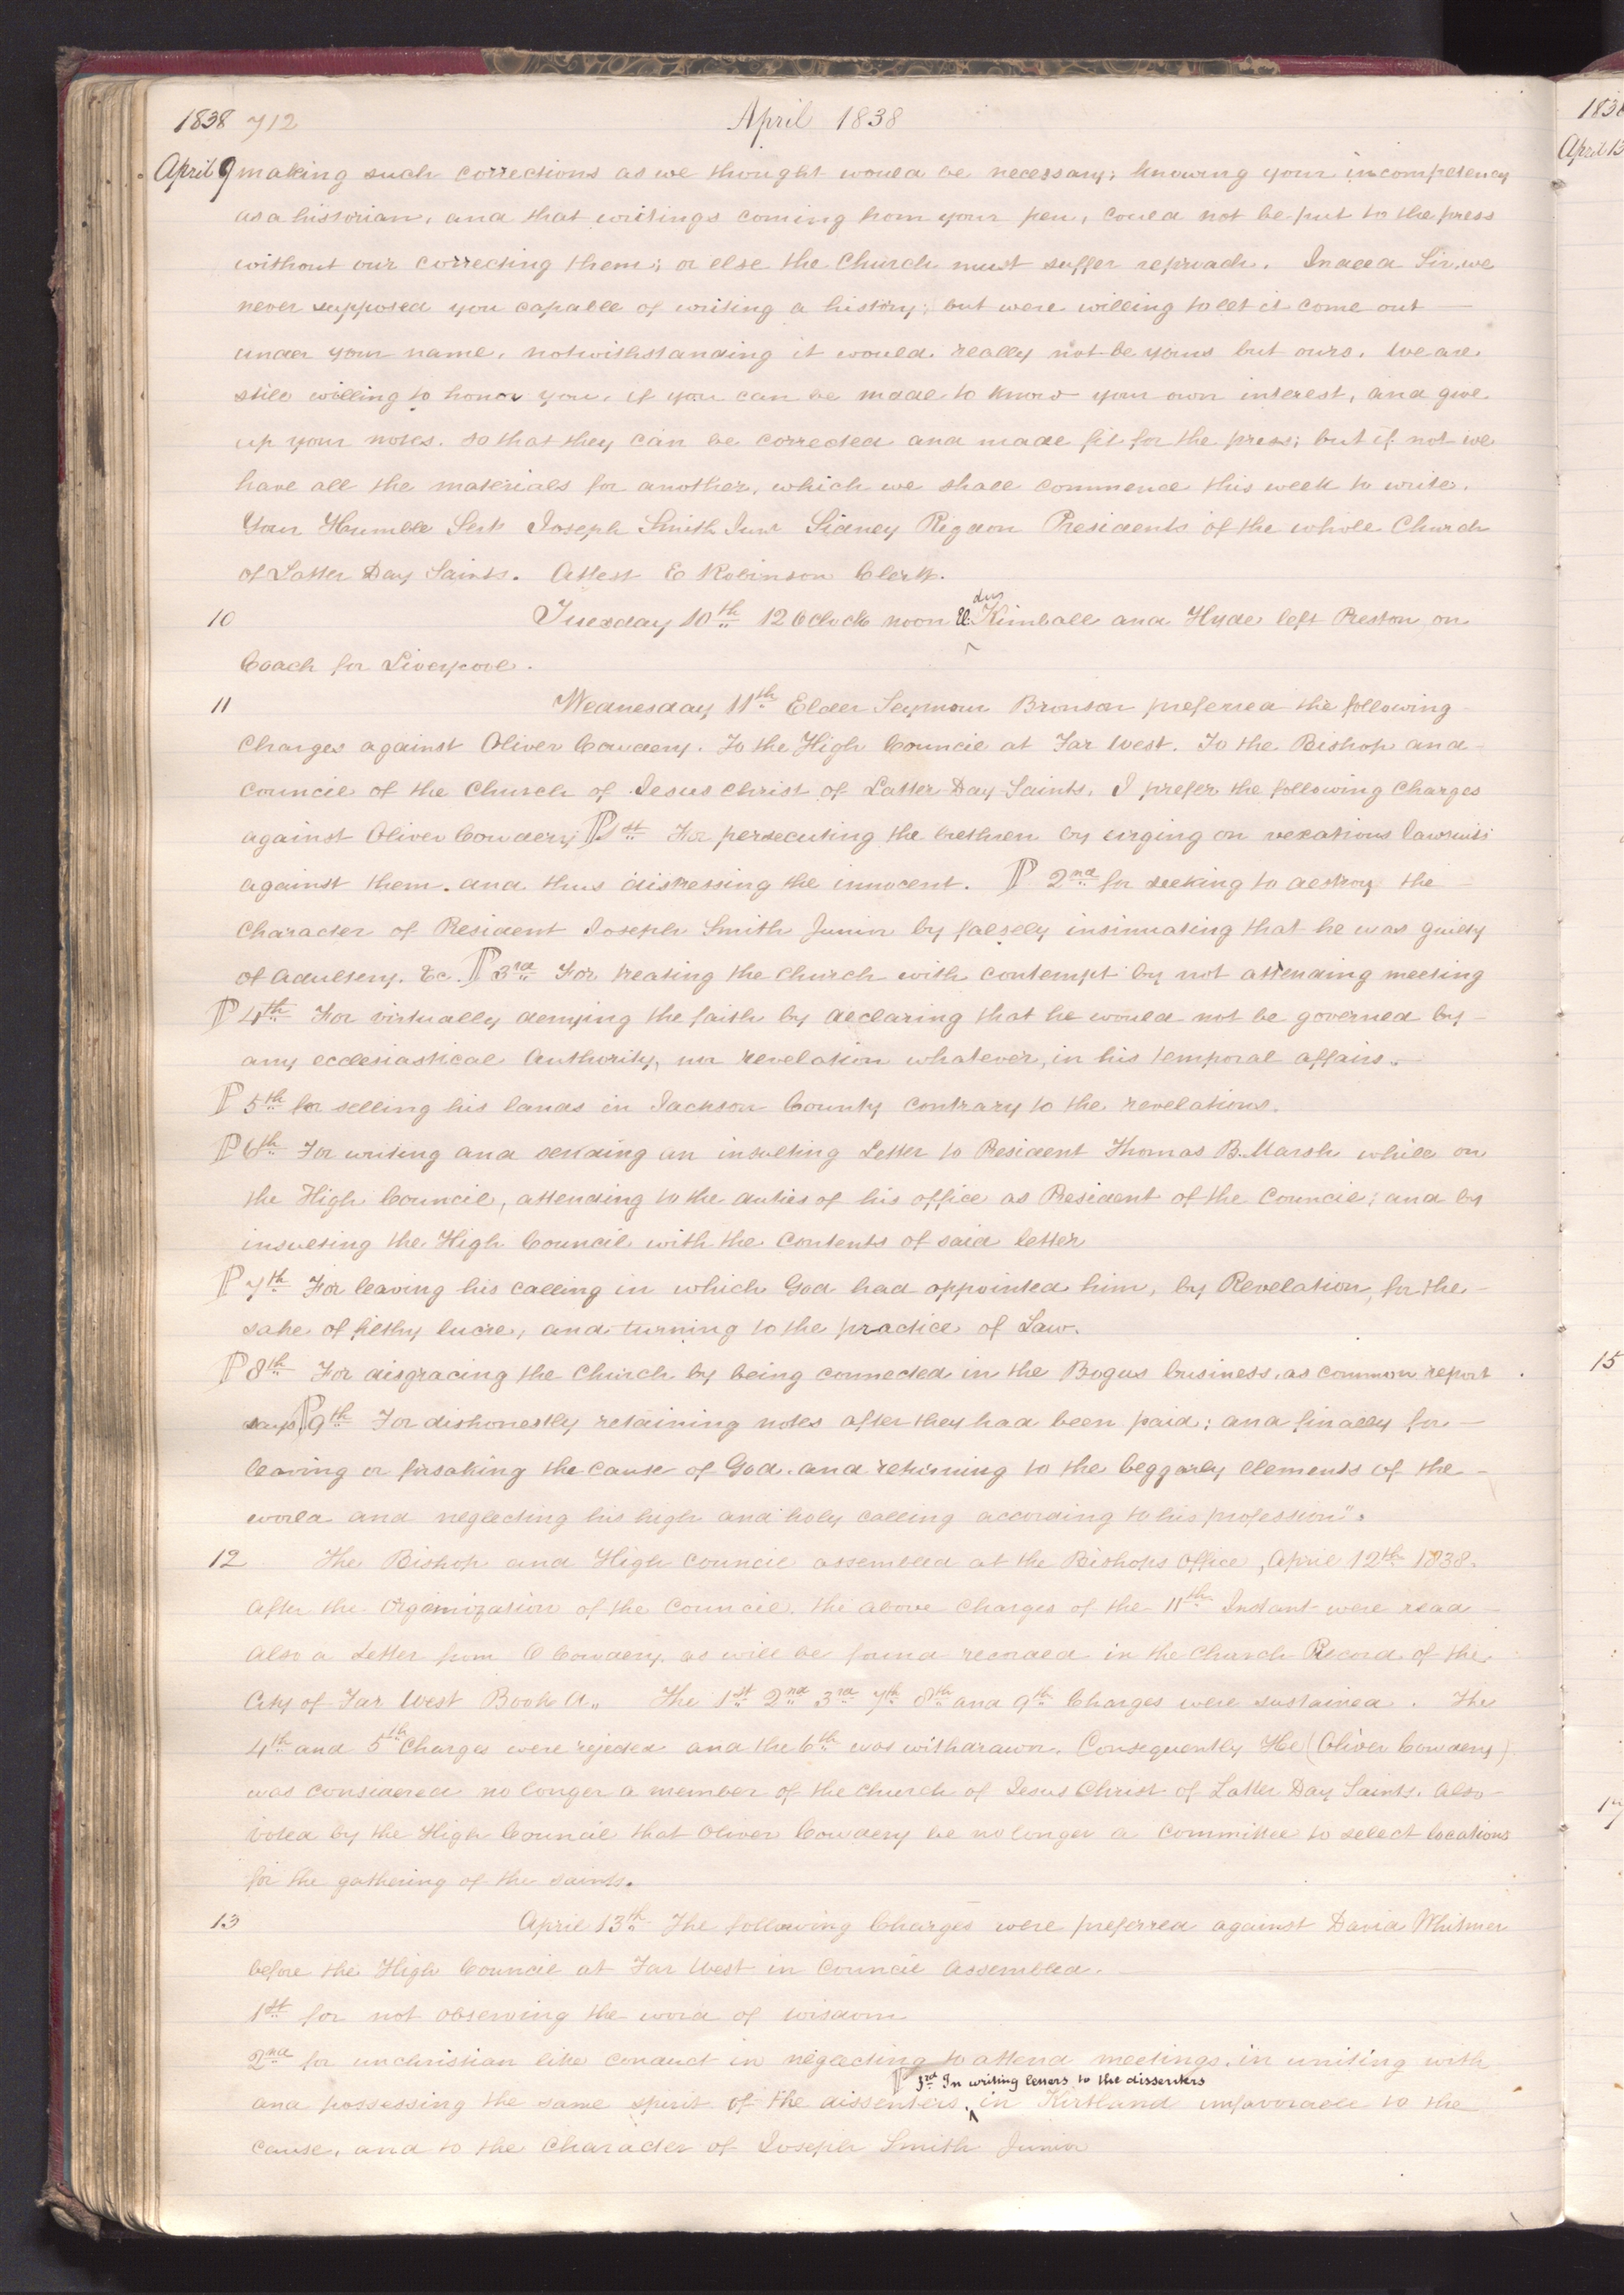 1838 712 April 1838
April 9 making such corrections as we thought would be necessary; knowing your incompetency
as a historian, and that writings coming from your pen, could not be put to the press
without our correcting them; or else the Church must suffer reproach. Indeed Sir, we
never supposed you capable of writing a history; but were willing to let it come out —
under your name, notwithstanding it would really not be yours but ours. We are
still willing to honor you, if you can be made to know your own interest, and give
up your notes, so that they can be corrected and made fit for the press; but if not we
have all the materials for another, which we shall commence this week to write.
Your Humble Servts Joseph Smith Junr Sidney Rigdon Presidents of the whole Church
of Latter Day Saints. Attest E Robinson Clerk.
10 Tuesday 10th 12 O'clock noon Elders Kimball and Hyde left Preston on
Coach for Liverpool.
11 Wednesday 11th Elder Seymour Bronson preferred the following
charges against Oliver Cowdery. To the High Council at Far West. To the Bishop and
council of the Church of Jesus Christ of Latter Day Saints, I prefer the following charges
against Oliver Cowdery ℙ 1st For persecuting the brethren by urging on vexatious lawsuits
against them, and thus distressing the innocent. ℙ 2nd for seeking to destroy the —
character of President Joseph Smith Junior by falsely insinuating that he was guilty
of adultery. &c. ℙ 3rd For treating the church with contempt by not attending meeting
ℙ 4th For virtually denying the faith by declaring that he would not be governed by —
any ecclesiastical Authority, nor revelation whatever, in his temporal affairs.
ℙ 5th for selling his lands in Jackson County contrary to the revelations.
ℙ 6th For writing and sending an insulting Letter to President Thomas B. Marsh while on
the High Council, attending to the duties of his office as President of the Council; and by
insulting the High Council with the contents of said letter
ℙ 7th For leaving his calling in which God had appointed him, by Revelation, for the —
sake of filthy lucre, and turning to the practice of Law.
ℙ 8th For disgracing the Church by being connected in the Bogus business, as common report
says. ℙ 9th For dishonestly retaining notes after they had been paid; and finally for —
leaving or forsaking the cause of God, and returning to the beggarly elements of the —
world and neglecting his high and holy calling according to his profession".
12 The Bishop and High Council assembled at the Bishops Office, April 12th 1838.
After the Organization of the Council, the above charges of the 11th Instant were read —
Also a Letter from O Cowdery, as will be found recorded in the Church Record of the
City of Far West Book A.. The 1st 2nd 3rd 7th 8th and 9th Charges were sustained. The
4th and 5th Charges were rejected and the 6th was withdrawn. Consequently He (Oliver Cowdery)
was considered no longer a member of the Church of Jesus Christ of Latter Day Saints. Also —
voted by the High Council that Oliver Cowdery be no longer a committee to select locations
for the gathering of the saints.
13 April 13th The following Charges were preferred against David Whitmer
before the High Council at Far West in Council Assembled.
1st for not observing the word of wisdom
2nd for unchristian like conduct in neglecting to attend meetings, in uniting with
ℙ 3rd In writing letters to the dissenters
and possessing the same spirit of the dissenters. ^ in Kirtland unfavorable to the
cause, and to the Character of Joseph Smith Junior
1838
April 13
15